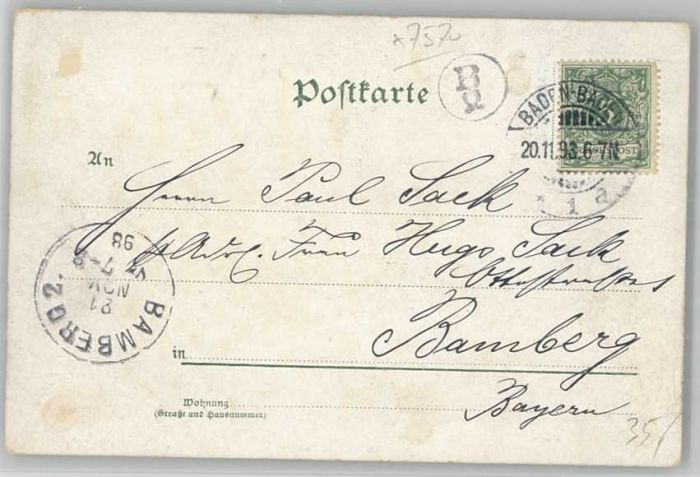 x7570
Postkarte
B
BADEN-BADEN
20.11.98.6-7N
1 a
An
Herrn Paul Sack
p. Adr. Frau Hugo Sack
Ottostrasse 1
BAMBERG 2.
21
NOV
7-8
98
in Bamberg
Wohnung
(Straße und Hausnummer)
Bayern
35/